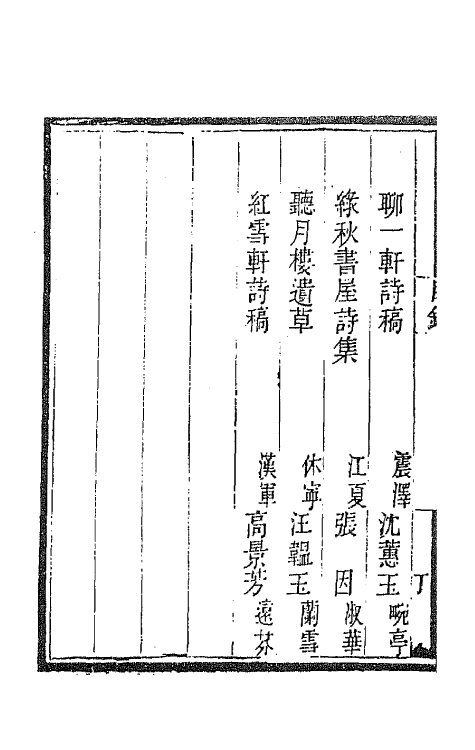 聊一軒詩稿 震澤沈蕙玉畹亭
綠秋書屋詩集 江夏張因淑華
聽月樓遺草 休寧汪韞玉蘭雪
紅雪軒詩稿 漢軍高景芳遠芬